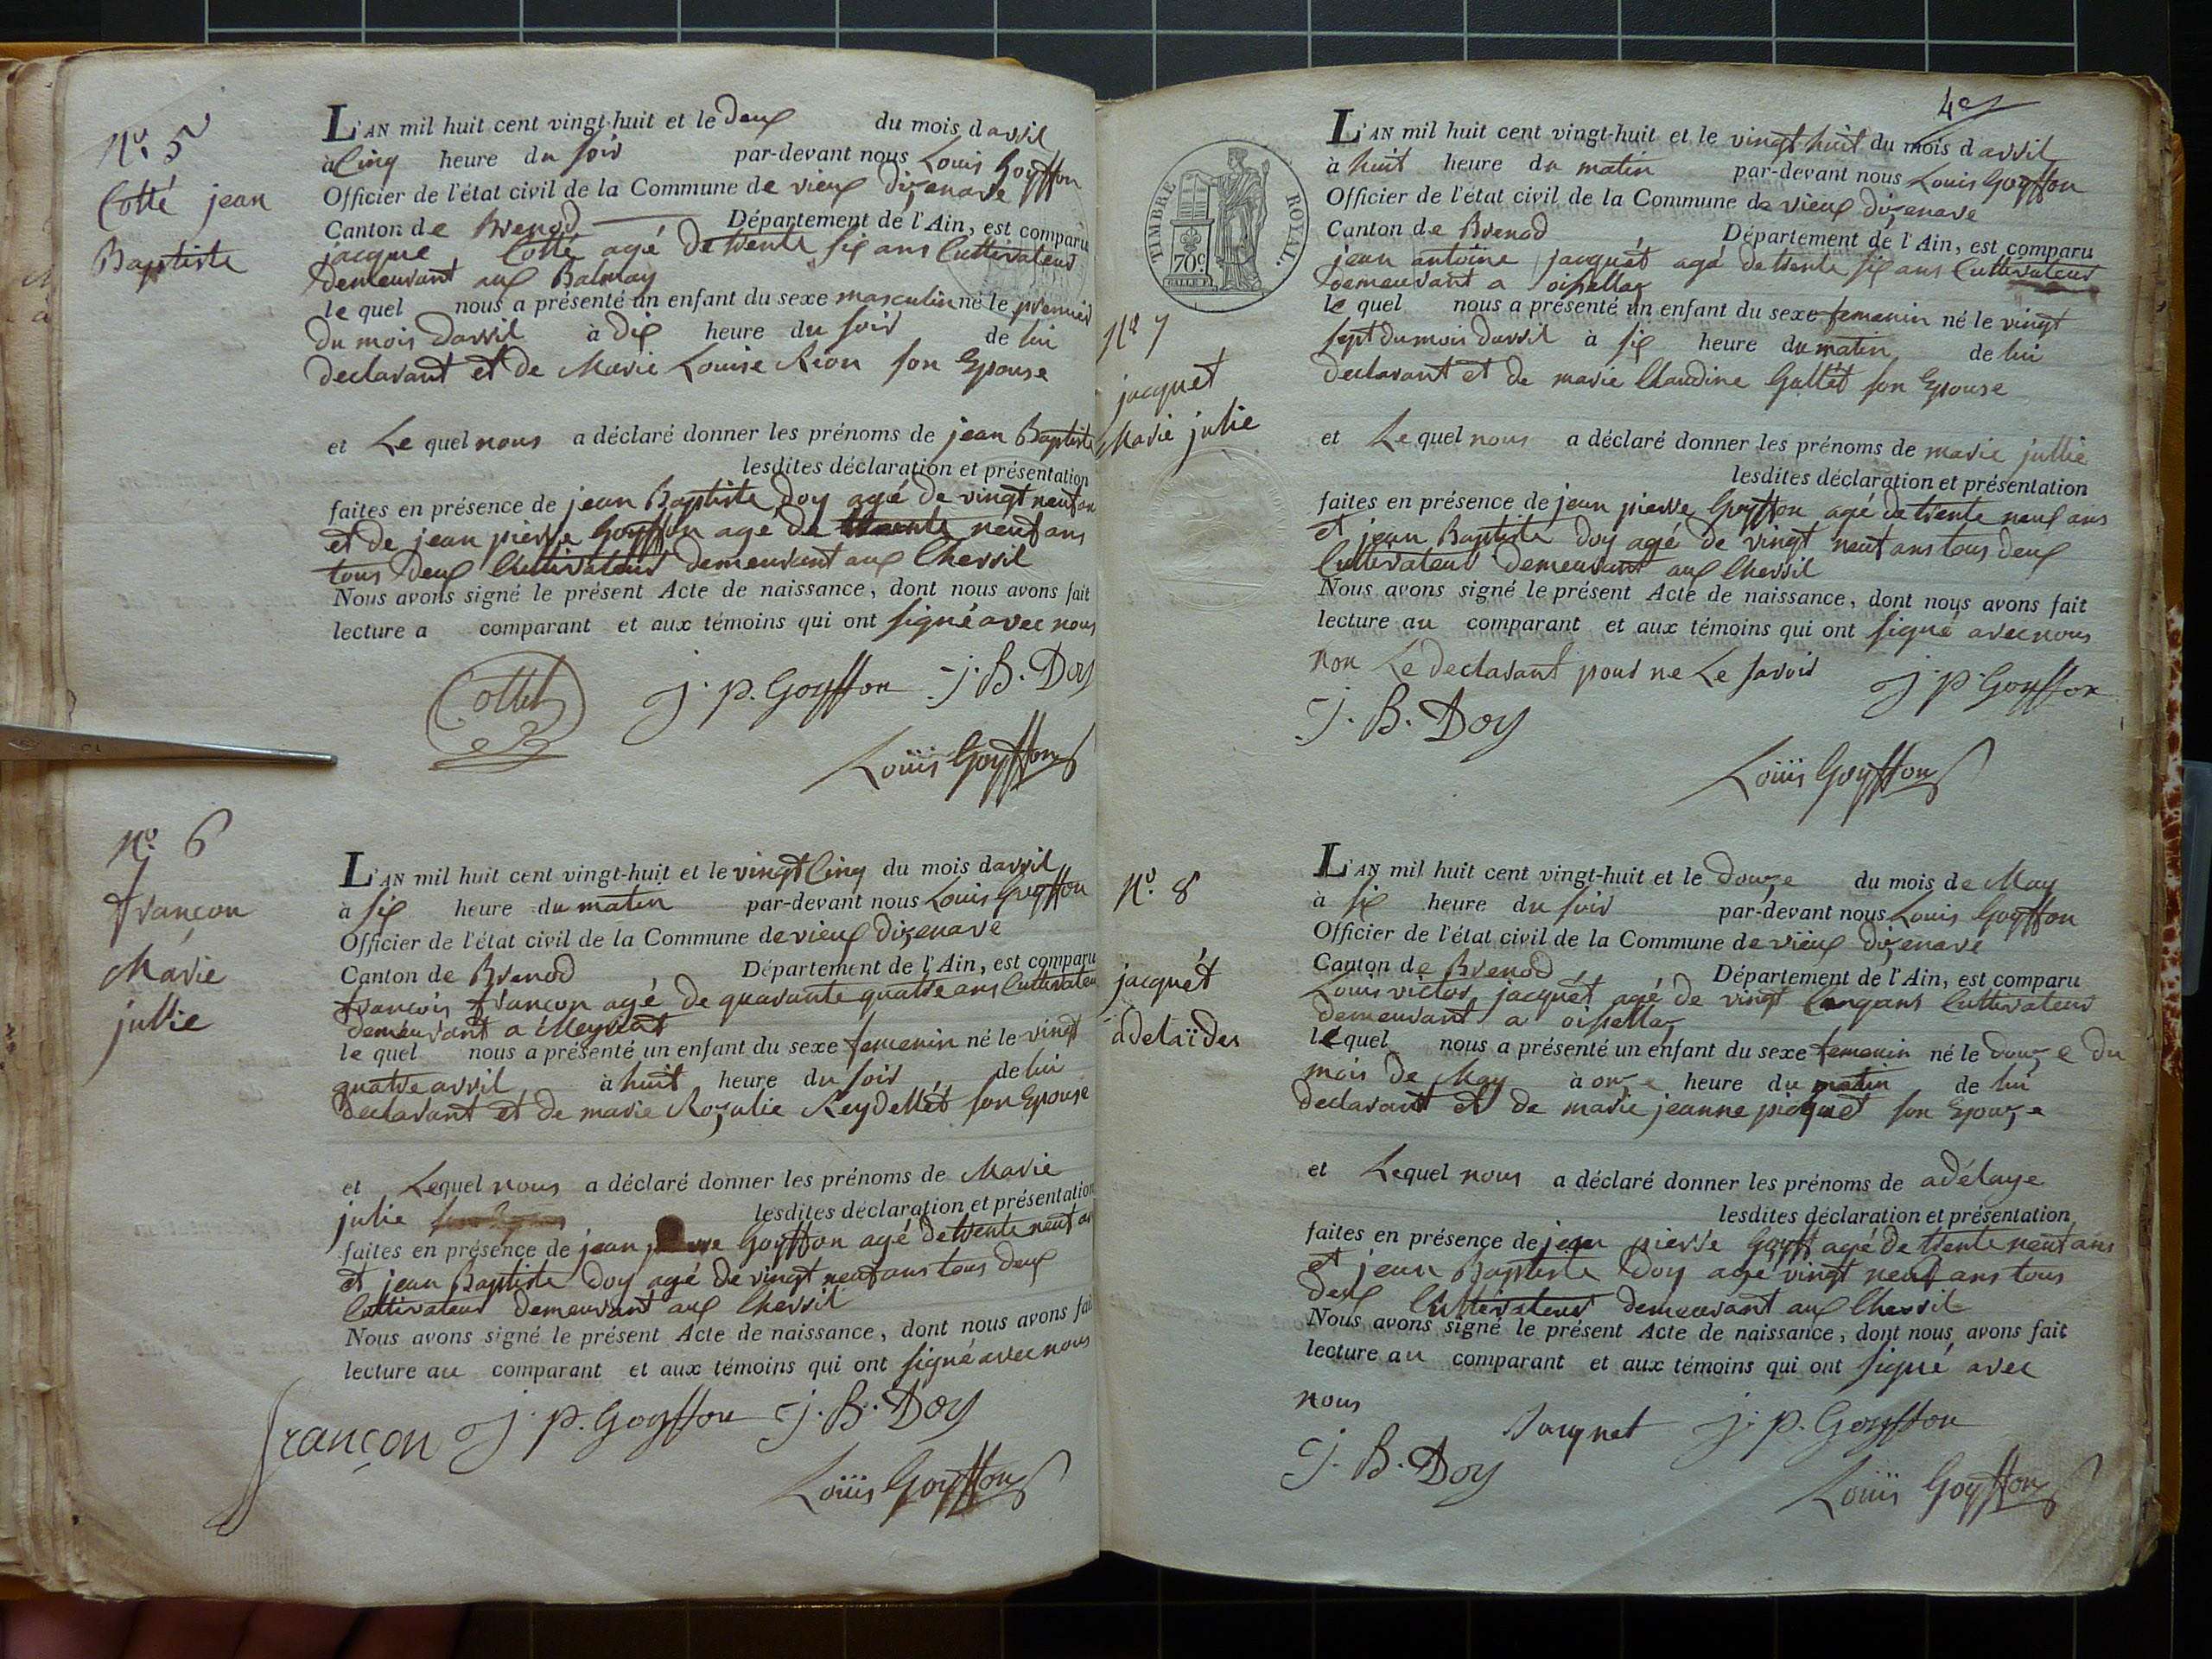 N.º 5
Cotté jean
Baptiste
L'AN mil huit cent vingt-huit et le deux du mois d avril
à Cinq heure du soir par-devant nous Louis Goyffon
Officier de l'état civil de la Commune de vieux dizenave
Canton de Brenod Département de l'Ain, est comparu
jacque Cotté agé de trente six ans Cultivateur
demeurant aux Balmay
le quel nous a présenté un enfant du sexe masculin né le premier
du mois davril à dix heure du soir de lui
declarant et de Marie Louise Réon son Epouse
et Le quel nous a déclaré donner les prénoms de jean Baptiste
lesdites déclaration et présentation
faites en présence de jean Baptiste Doy agé de vingt neuf an
et de jean pierre Goyffon age de trente neuf ans
tous deux Cultivateur demeurant aux Chevril
Nous avons signé le présent Acte de naissance, dont nous avons fait
lecture a comparant et aux témoins qui ont signé avec nous
Cottet J. P. Goyffon J. B. Doy
Louis Goyffon
N.º 6
françon
Marie
jullie
L'AN mil huit cent vingt-huit et le vingt Cinq du mois d avril
à six heure du matin par-devant nous Louis Goyffon
Officier de l'état civil de la Commune de vieux dizenave
Canton de Brenod Département de l'Ain, est comparu
françois françon agé de quarante quatre ans Cultivateu
demeurant a Meyriat
le quel nous a présenté un enfant du sexe femenin né le vingt
quatre avril à huit heure du soir de lui
declarant et de marie Rozalie Reydellét son Epouse
et Lequel nous a déclaré donner les prénoms de Marie
julie lesdites déclaration et présentation
faites en présence de jean Goyffon agé de trente neuf an
et jean Baptiste Doy agé de vingt neuf ans tous deux
Cultivateur demeurant aux Chevril
Nous avons signé le présent Acte de naissance, dont nous avons fai
lecture au comparant et aux témoins qui ont signé avec nous
françon J. P. Goyffon J. B. Doy
Louis Goyffon
4e
TIMBRE ROYAL.
70c.
N.º 7
jacquet
Marie julie
L'AN mil huit cent vingt-huit et le vingt huit du mois d avril
à huit heure du matin par-devant nous Louis Goyffon
Officier de l'état civil de la Commune de vieux dizenave
Canton de Brenod Département de l'Ain, est comparu
jean antoine jacquét agé de trente six ans Cultivateur
demeurant a oissellaz
le quel nous a présenté un enfant du sexe femenin né le vingt
sept du mois davril à six heure du matin de lui
declarant et de marie Claudine Gallét son Epouse
et Le quel nous a déclaré donner les prénoms de marie jullie
lesdites déclaration et présentation
faites en présence de jean pierre Goyffon agé de trente neuf ans
et jean Baptiste Doy agé de vingt neuf ans tous deux
Cultivateur demeurant aux Chevril
Nous avons signé le présent Acte de naissance, dont nous avons fait
lecture au comparant et aux témoins qui ont signé avec nous
non Le declarant pour ne Le savoir J. P. Goyffon
J. B. Doy
Louis Goyffon
N.º 8
jacquét
adelaïdes
L'AN mil huit cent vingt-huit et le douze du mois de May
à six heure du soir par-devant nous Louis Goyffon
Officier de l'état civil de la Commune de vieux dizenave
Canton de Brenod Département de l'Ain, est comparu
Louis victor jacquét agé de vingt Cinq ans Cultivateur
demeurant a oissellaz
le quel nous a présenté un enfant du sexe femenin né le douze du
mois de May à onze heure du matin de lui
declarant et de marie jeanne picquet son Epouze
et Lequel nous a déclaré donner les prénoms de adélaye
lesdites déclaration et présentation
faites en présence de jean pierre Goyff agé de trente neuf ans
et jean Baptiste Doy agé vingt neuf ans tous
deux Cultivateur demeurant aux Chevril
Nous avons signé le présent Acte de naissance, dont nous avons fait
lecture au comparant et aux témoins qui ont signé avec
nous
Jacquet J. P. Goyffon
J. B. Doy
Louis Goyffon